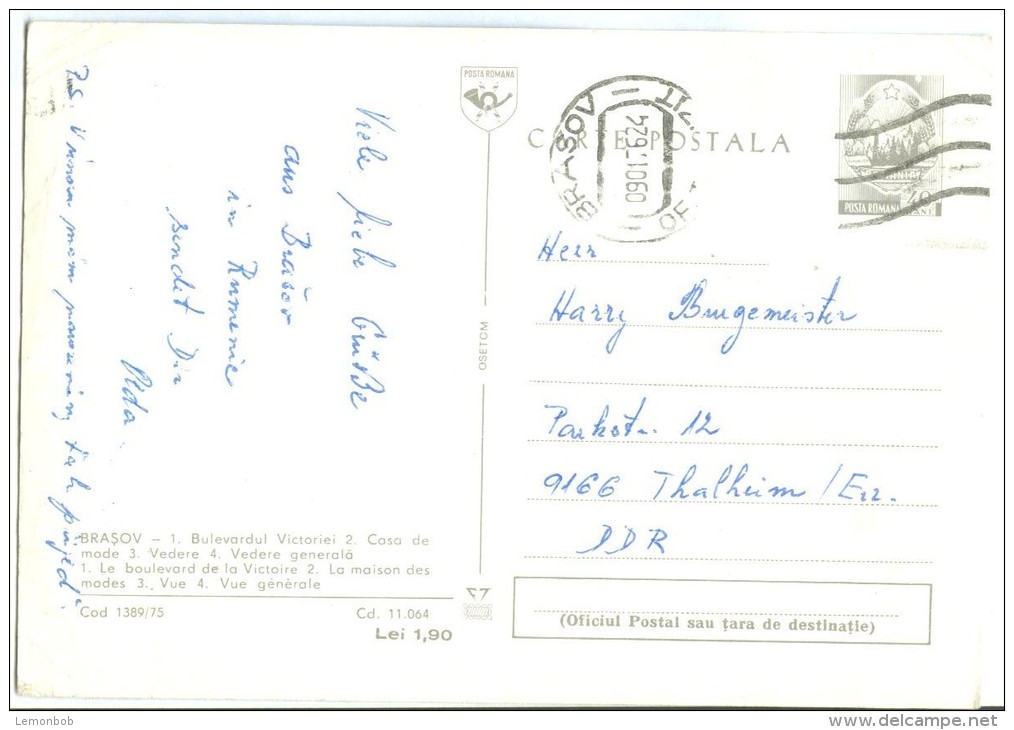 POSTA ROMANA
CARTE POSTALA
BRASOV
POSTA ROMANA
40
Viele liebe Grüße
aus Brašov
in Rumenie
sendet Dir
P.S.
OSETCM
Herr
Harry Burgemeister
Parkstr. 12
9166 Thalheim / Erz.
DDR
BRAȘOV – 1. Bulevardul Victoriei 2. Casa de
mode 3. Vedere 4. Vedere generală
1. Le boulevard de la Victoire 2. La maison des
modes 3. Vue 4. Vue générale
Cod 1389/75 Cd. 11.064
Lei 1,90
(Oficiul Postal sau țara de destinație)
Lemonbob
www.delcampe.net